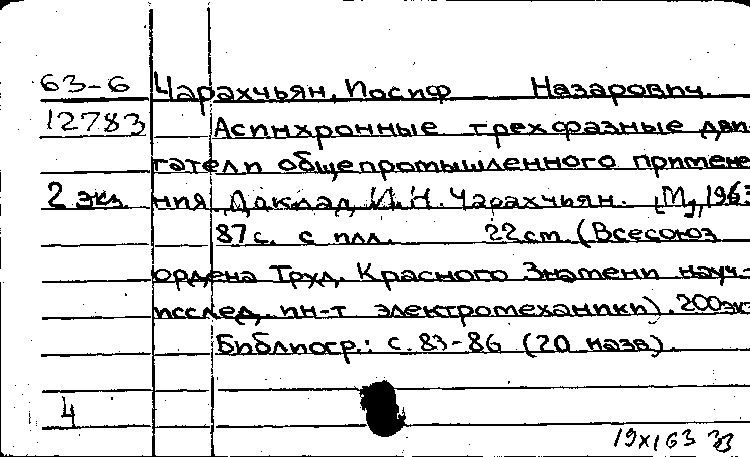 63-6 Чарахчьян, Иосиф Назарович.
12783 Асинхронные трехфазные дви-
гатели общепромышленного примене
2 экз. ния. Доклад И. Н. Чарахчьян. [М., 1963
87 с. с илл. 22 см. (Всесоюз
ордена Труд. Красного Знамени науч-
исслед. ин-т электромеханики). 200 эк
Библиогр.: с. 83-86 (70 назв).
4
19 XI 63